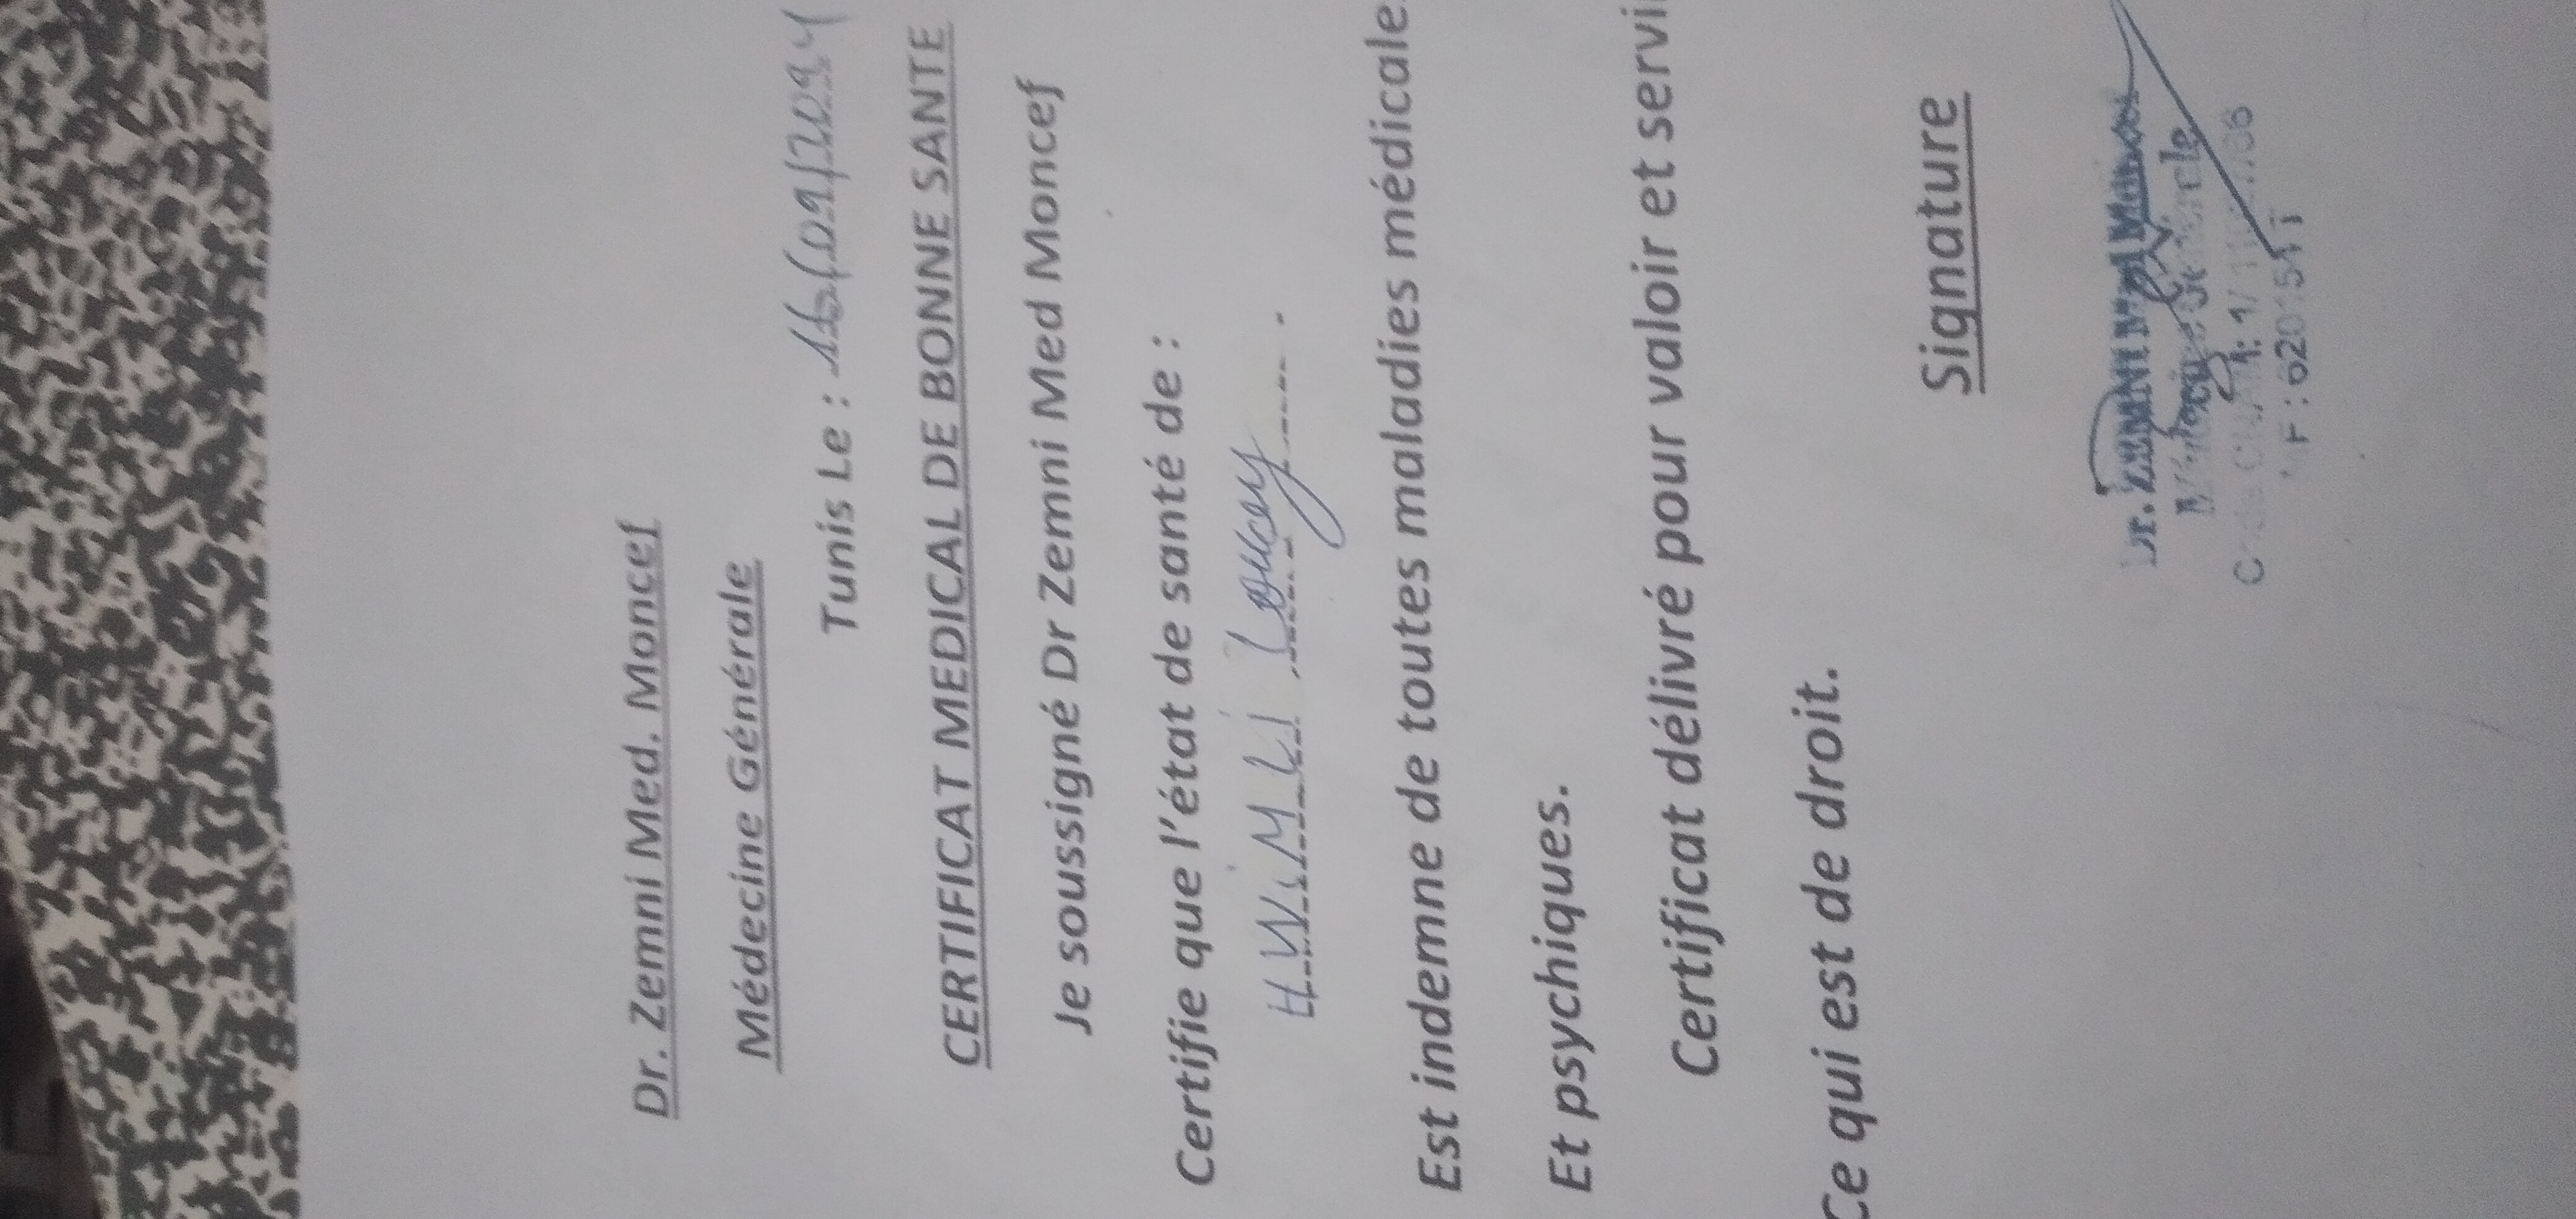 Dr. Zemni Med. Moncef
Médecine Générale
Tunis Le : 16/09/2024
CERTIFICAT MEDICAL DE BONNE SANTE
Je soussigné Dr Zemni Med Moncef
Certifie que l'état de santé de :
Est indemne de toutes maladies médicale
Et psychiques.
Certificat délivré pour valoir et servi
Ce qui est de droit.
Signature
Dr. ZEMNI Med Moncef